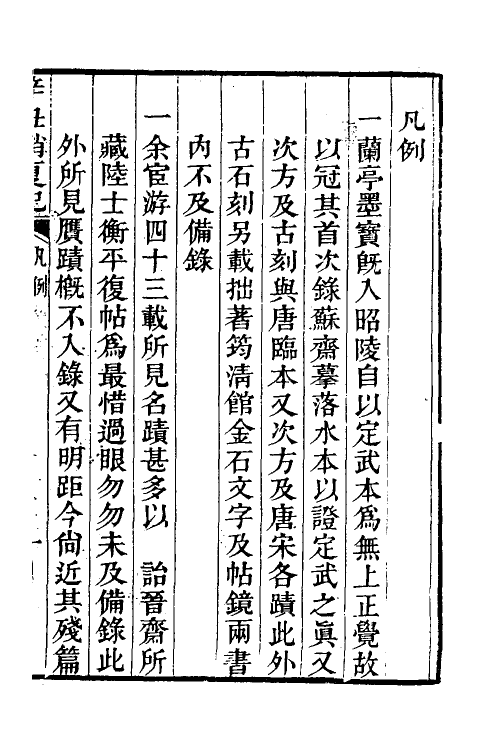 凡例
一蘭亭墨寶旣入昭陵自以定武本爲無上正覺故
以冠其首次錄蘇齋摹落水本以證定武之眞又
次方及古刻與唐臨本又次方及唐宋各蹟此外
古石刻另載拙著筠淸館金石文字及帖鏡兩書
內不及備錄
一余宦游四十三載所見名蹟甚多以　詒晉齋所
藏陸士衡平復帖爲最惜過眼匆匆未及備錄此
外所見贋蹟槪不入錄又有明距今尙近其殘篇
辛丑消夏記　凡例